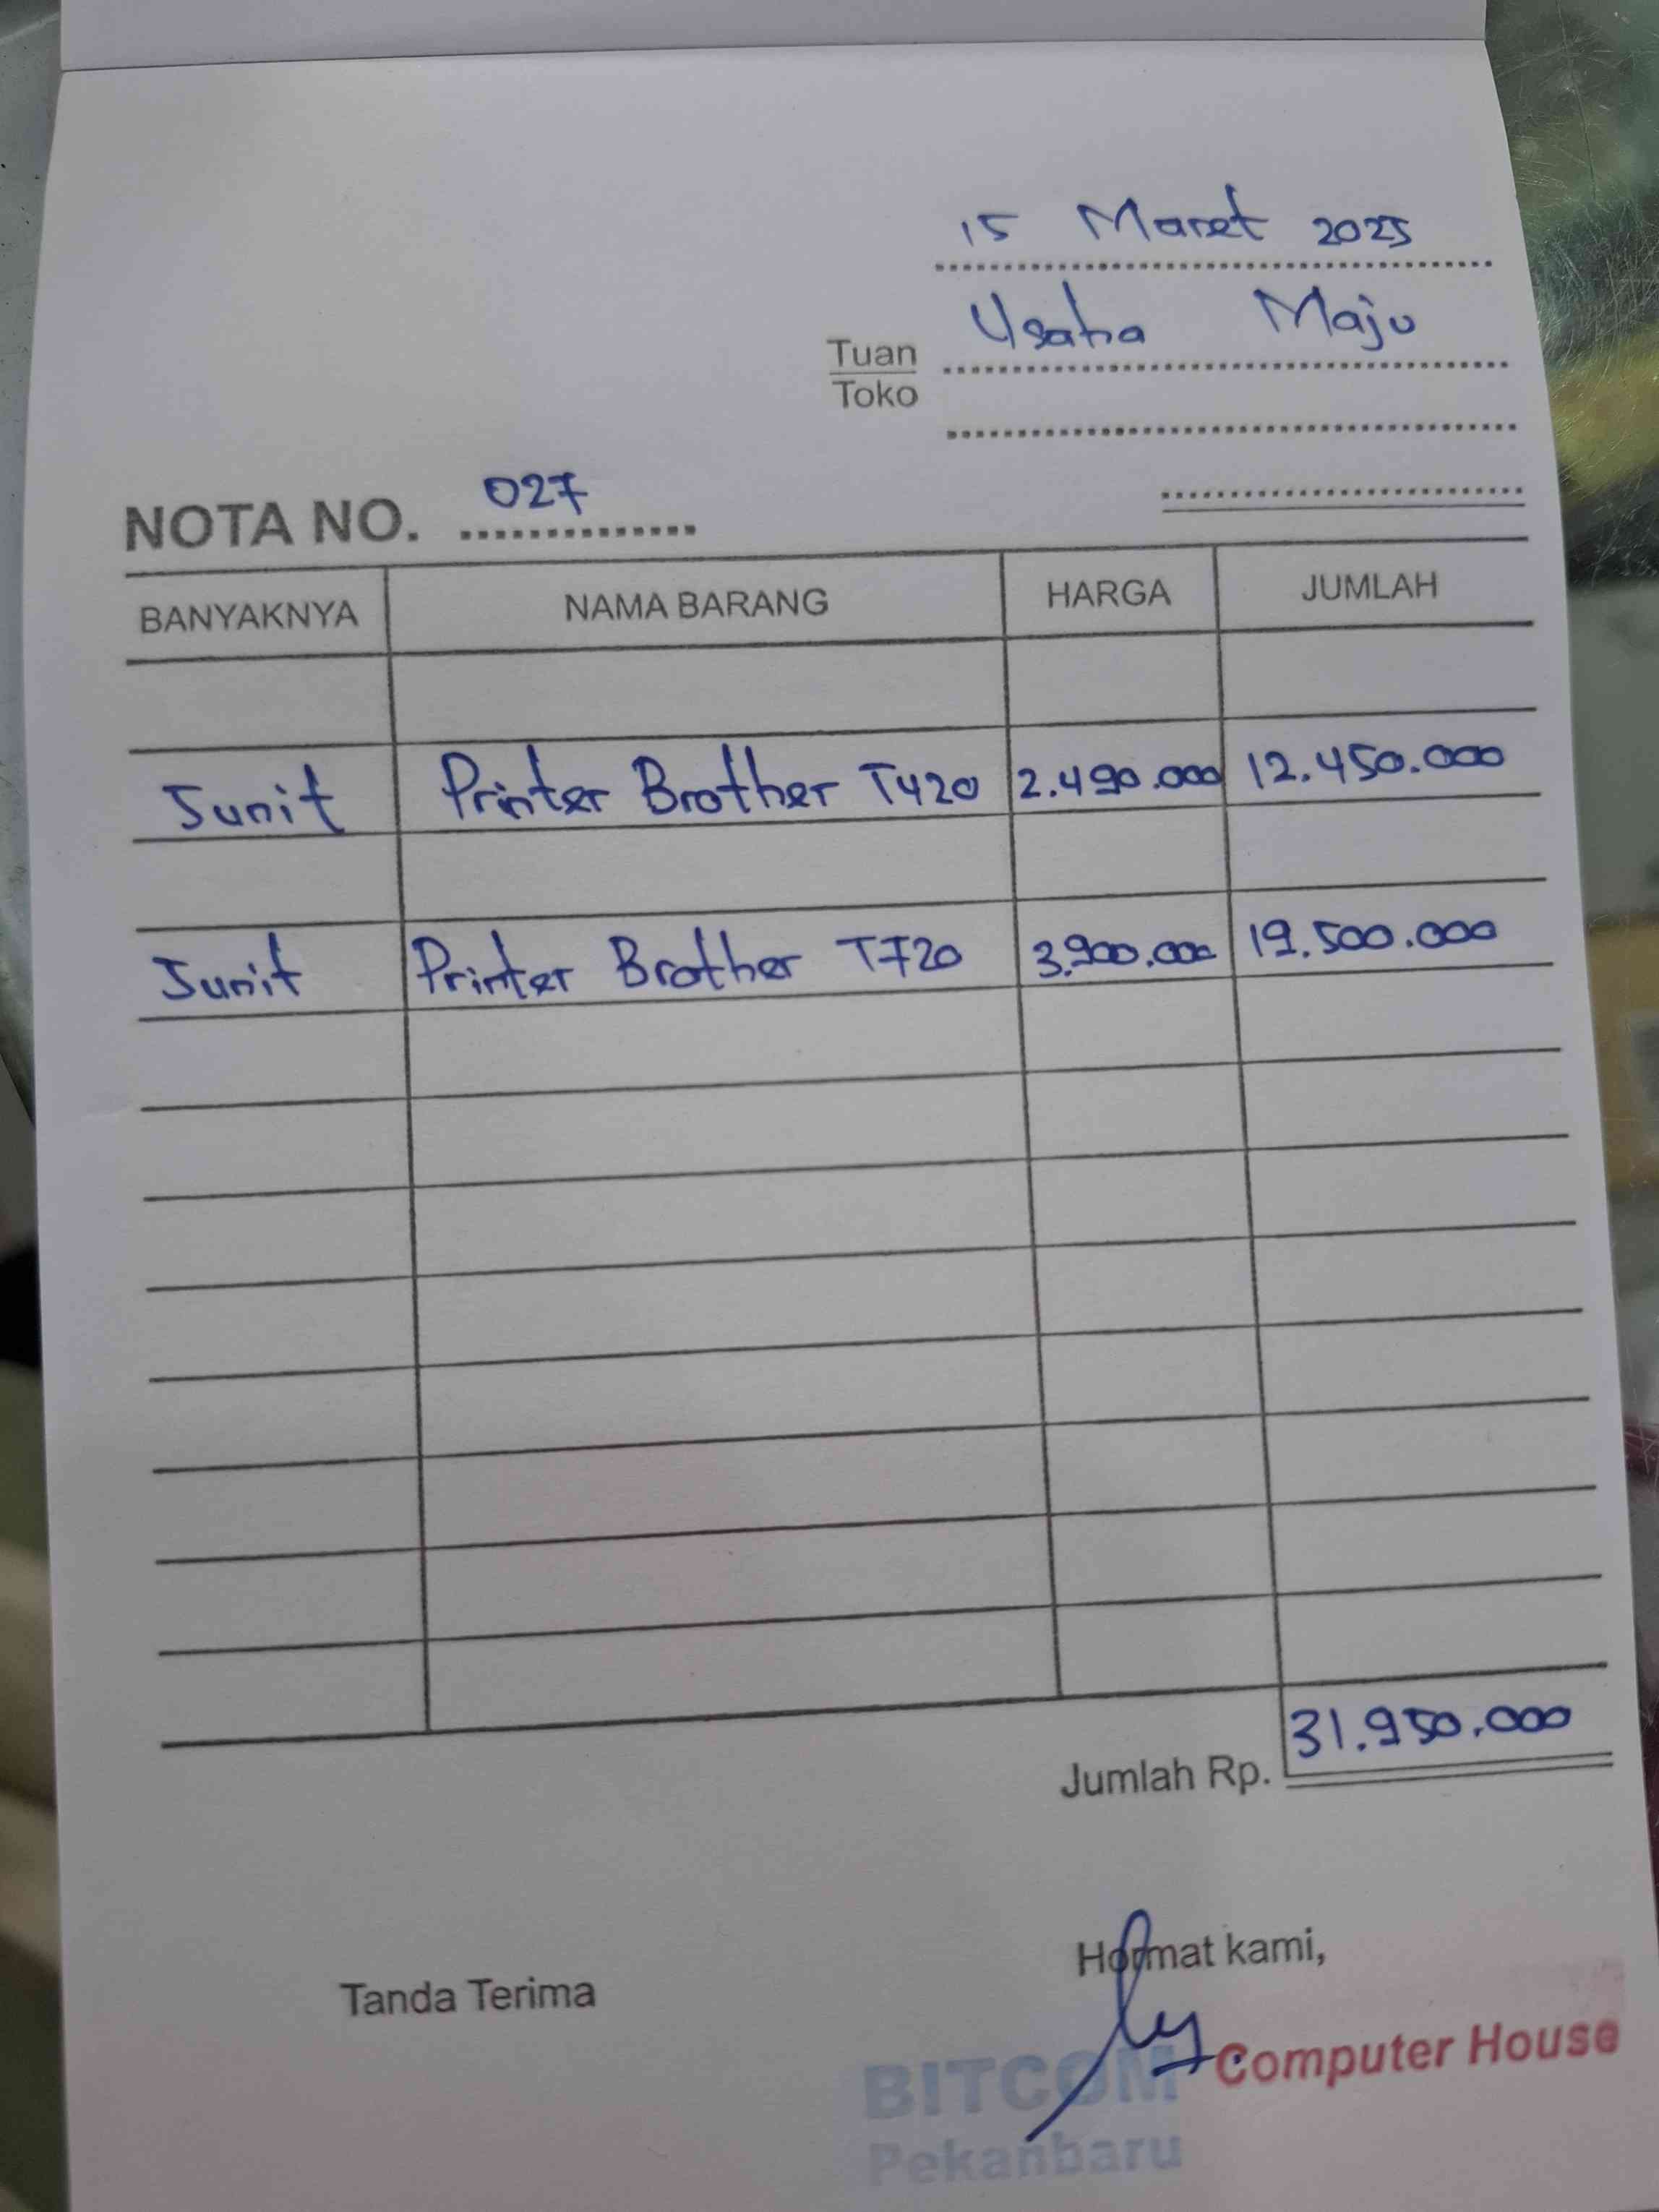 15 Maret 2025
Tuan Usaha Maju
Toko
NOTA NO. 027
BANYAKNYA NAMA BARANG HARGA JUMLAH
5unit Printer Brother T420 2.490.000 12.450.000
5unit Printer Brother T720 3.900.000 19.500.000
Jumlah Rp. 31.950.000
Tanda Terima Hormat kami,
BITCOM Computer House
Pekanbaru